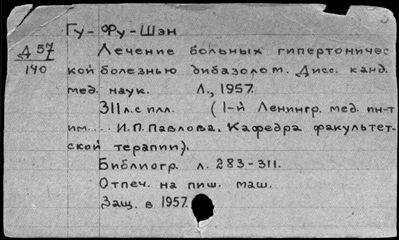 Гу-Фу-Шэн
Д 57
140
Лечение больных гипертоничес
кой болезнью дибазолом. Дисс. канд.
мед. наук. Л., 1957.
311 л. с илл. (1-й Ленингр. мед. ин-т
им.... И.П. Павлова. Кафедра факультет-
ской терапии).
Библиогр. л. 283-311.
Отпеч. на пиш. маш.
Защ. в 1957.